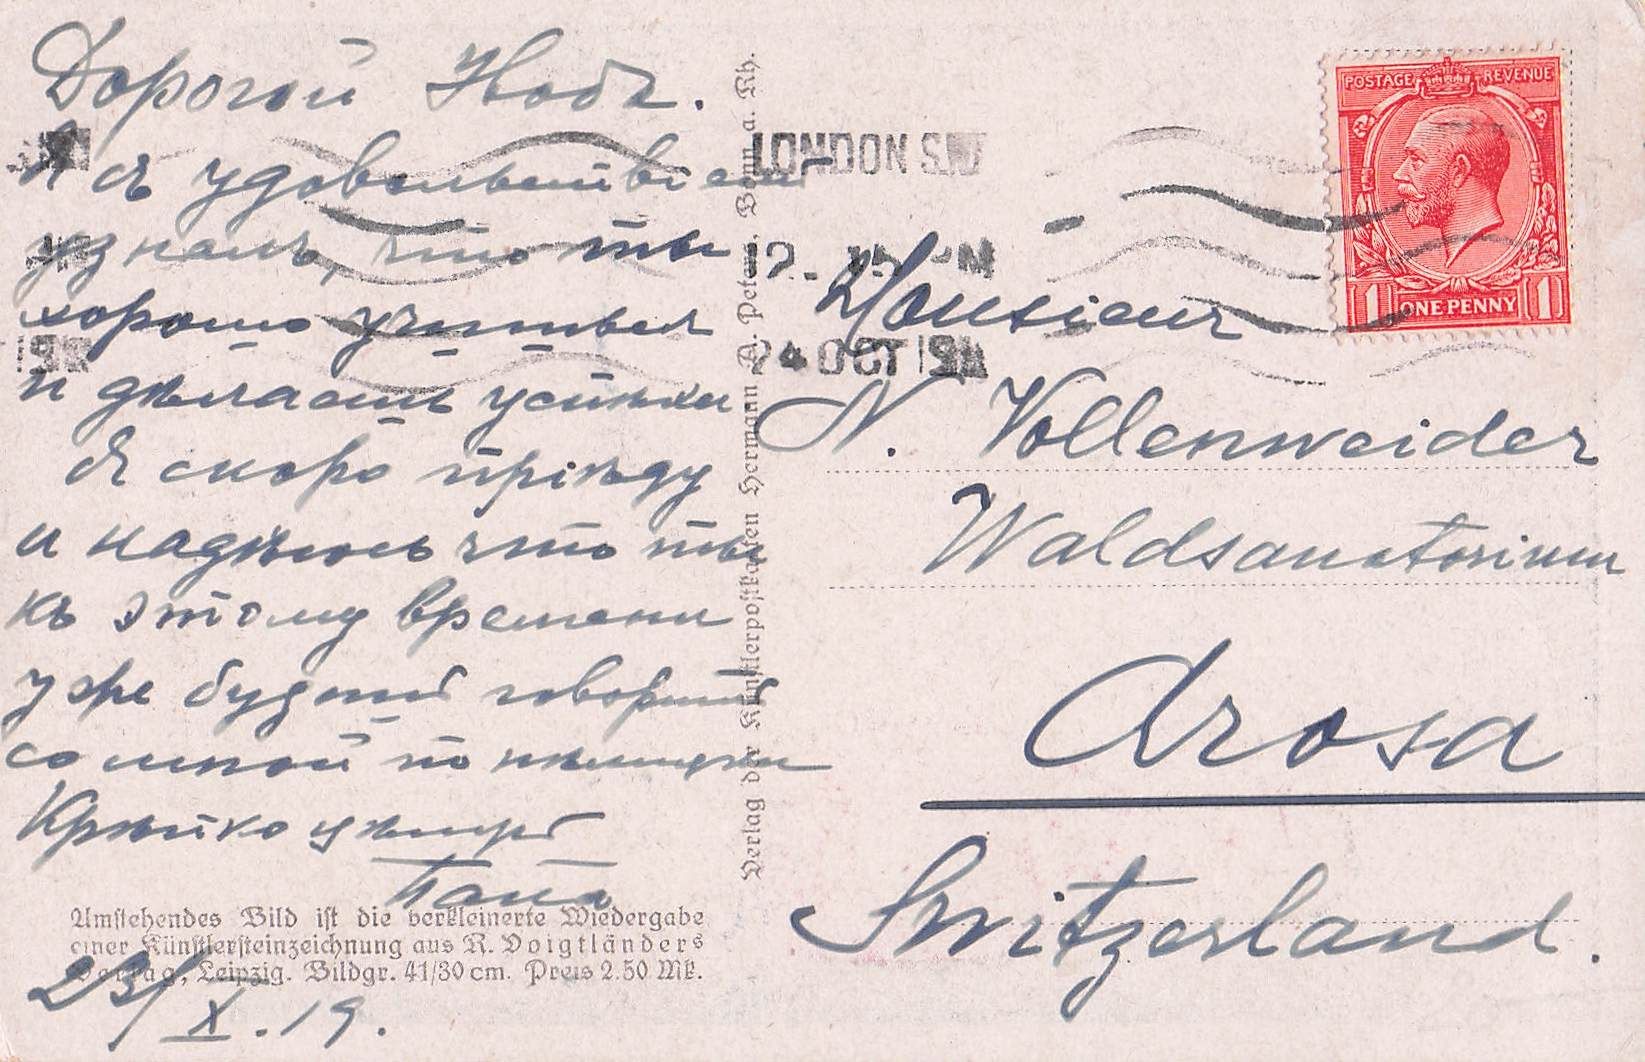 Дорогой Нодя.
Я съ удовольствіем
узналъ, что ты
хорошо учишься
и дѣлаешь успѣхи
Я скоро пріѣду
и надѣюсь что ты
къ этому времени
уже будешь говорить
со мной по нѣмецки
Крѣпко цѣлую
Папа
23/X.19.
Umstehendes Bild ist die verkleinerte Wiedergabe
einer Künstlersteinzeichnung aus R. Voigtländers
Verlag, Leipzig. Bildgr. 41/30 cm. Preis 2.50 Mk.
Verlag der Künstlerpostkarten Hermann A. Peters, Bonn a. Rh.
LONDON S.W
12. 15 PM
24 OCT 19
POSTAGE REVENUE
1 ONE PENNY 1
Monsieur
N. Vollenweider
Waldsanatorium
Arosa
Switzerland.